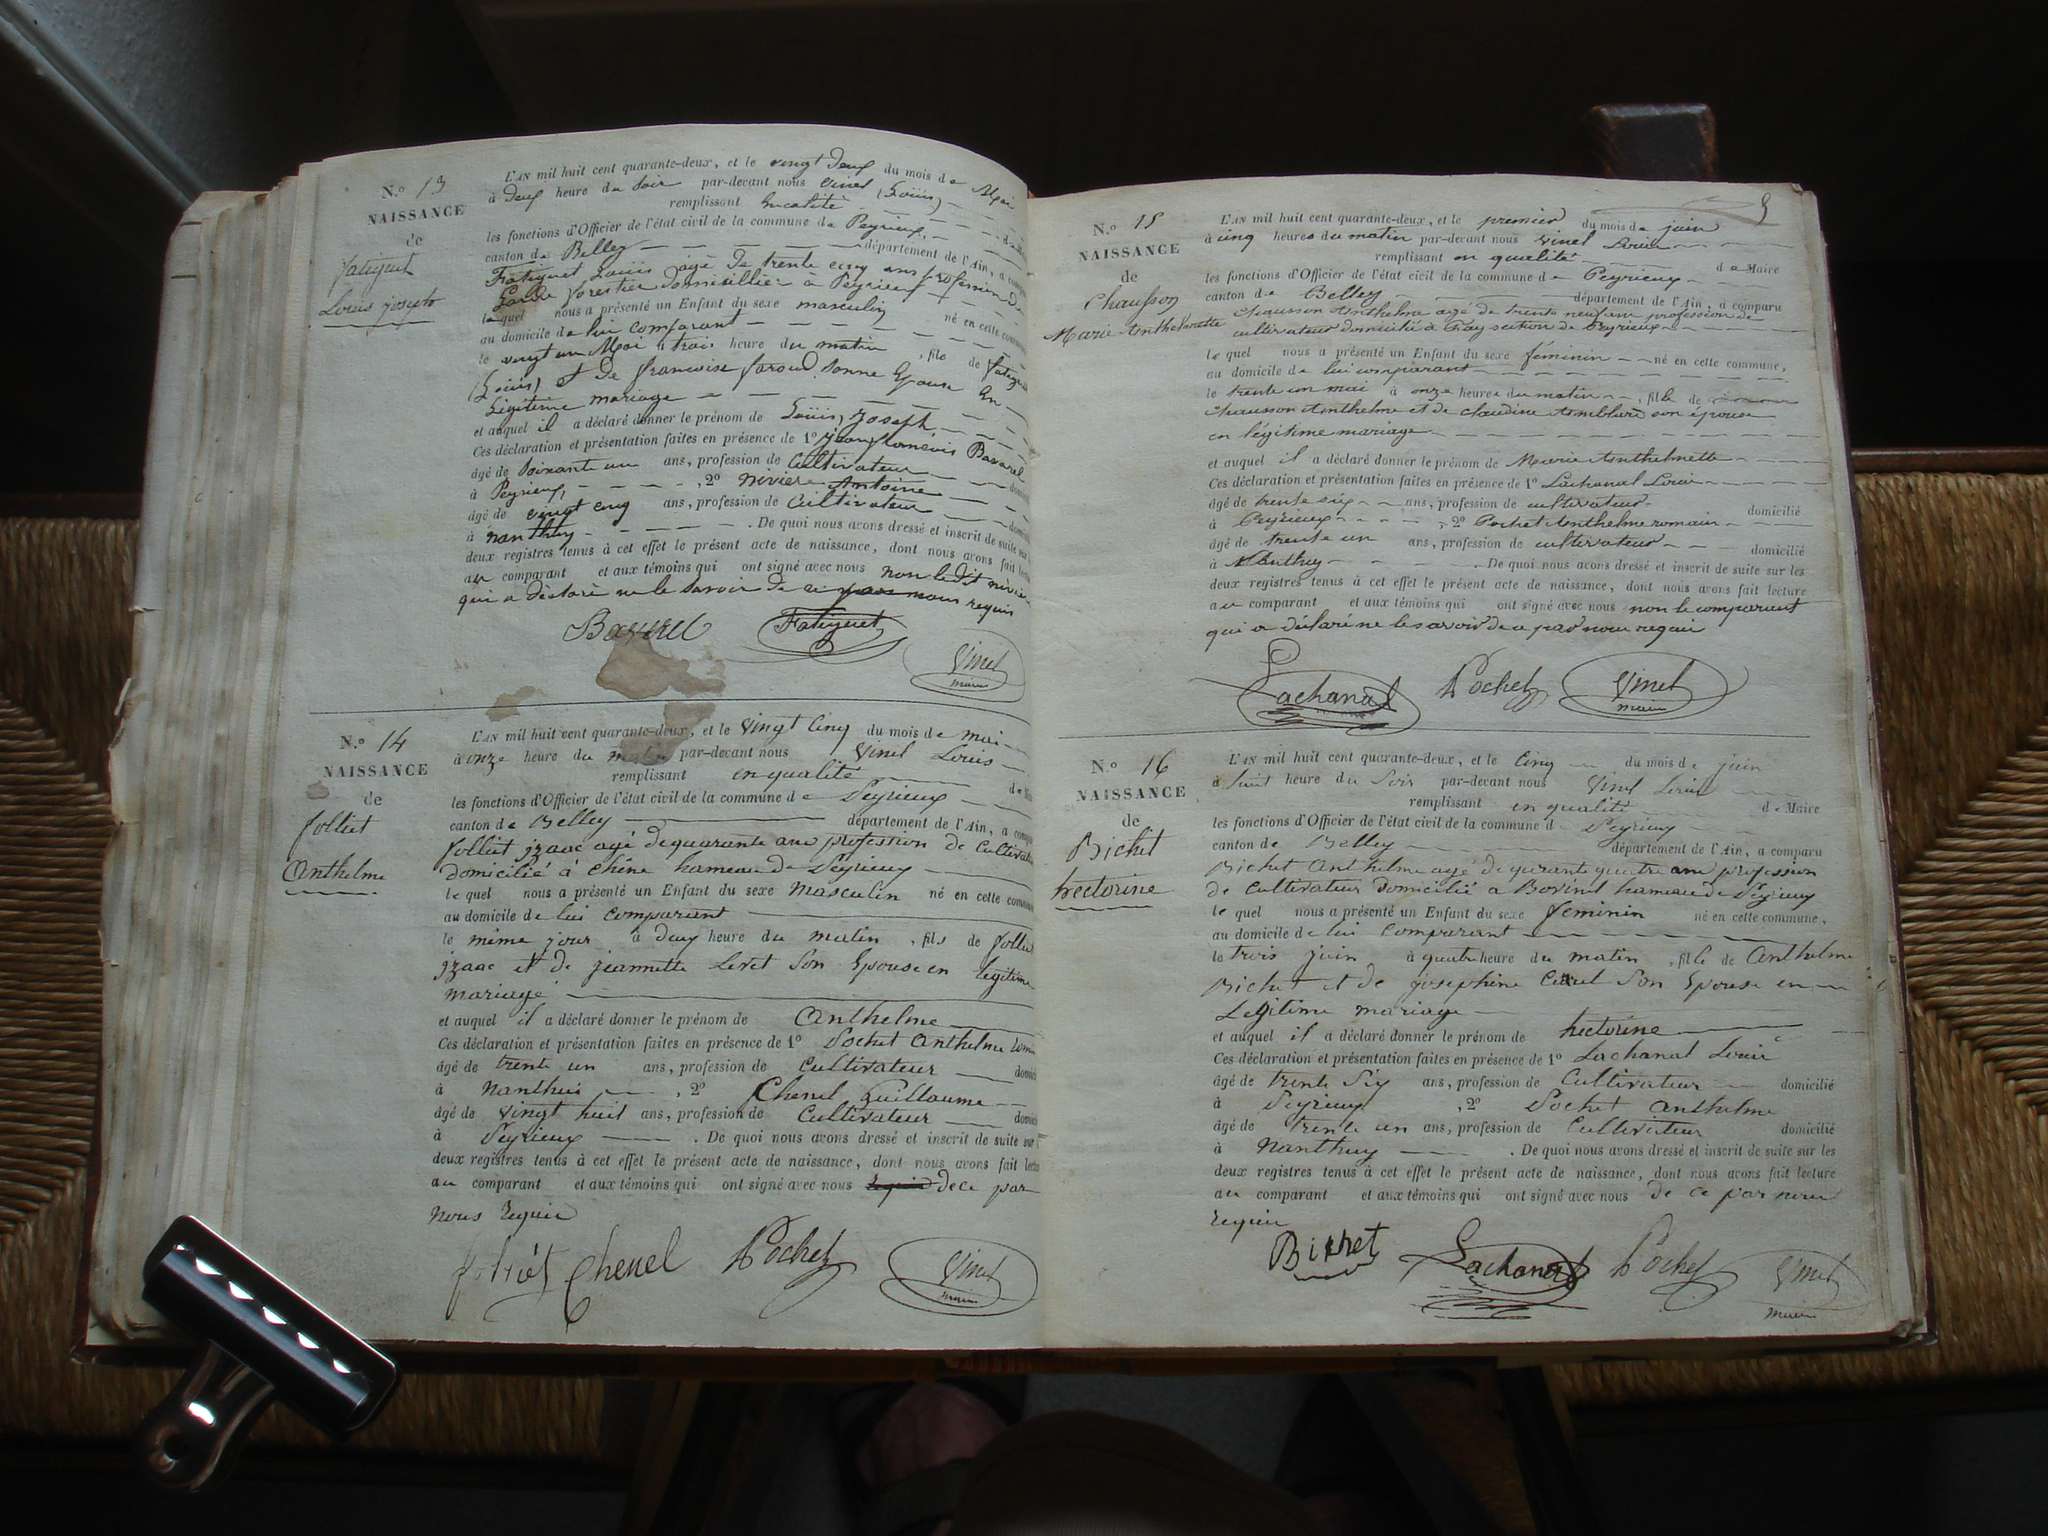 N.o 13
NAISSANCE
de
fatiguet
Louis joseph
L'AN mil huit cent quarante-deux, et le vingt deux du mois de Mai
à deux heure du soir par-devant nous Vinel (Louis)
remplissant en calité
les fonctions d'Officier de l'état civil de la commune de Peyrieux
canton de Belley département de l'Ain, a
Fatiguet Louis agé de trente cinq ans profession de
Garde forestier domicillier à Peyrieux
lequel nous a présenté un Enfant du sexe masculin né en cette
au domicile de lui comparant
le vingt un Mai à trois heure du matin , fils de fatiguet
(Louis) et de francoise faroud Sonne Epouse En
Légitime mariage
et auquel il a déclaré donner le prénom de Louis Joseph
Ces déclaration et présentation faites en présence de 1o Bavarel
âgé de Soixante un ans, profession de Cultivateur
à Peyrieux, , 2o nivière Antoine
âgé de vingt cinq ans, profession de Cultivateur
à nanthuy . De quoi nous avons dressé et inscrit de suite sur
deux registres tenus à cet effet le présent acte de naissance, dont nous avons fait
au comparant et aux témoins qui ont signé avec nous non le dit nivière
qui a déclaré ne le savoir de ce nous requis
Bavarel Fatiguet Vinel
maire
N.o 14
NAISSANCE
de
folliet
Anthelme
L'AN mil huit cent quarante-deux, et le vingt cinq du mois de mai
à onze heure du matin par-devant nous Vinel Louis
remplissant en qualité
les fonctions d'Officier de l'état civil de la commune de Peyrieux
canton de Belley département de l'Ain, a
folliet jzaac agé de quarante ans profession de Cultivateur
domicilié à Chêne hameau de Peyrieux
lequel nous a présenté un Enfant du sexe Masculin né en cette
au domicile de lui comparant
le même jour à deux heure du matin , fils de folliet
jzaac et de jeannette Levet Son Epouse en legitime
mariage
et auquel il a déclaré donner le prénom de Anthelme
Ces déclaration et présentation faites en présence de 1o Pochet Anthelme
âgé de trente un ans, profession de Cultivateur
à Nanthui , 2o Chenel Guillaume
âgé de vingt huit ans, profession de Cultivateur
à Peyrieux . De quoi nous avons dressé et inscrit de suite sur
deux registres tenus à cet effet le présent acte de naissance, dont nous avons fait
au comparant et aux témoins qui ont signé avec nous de ce par
nous requis
folliet Chenel Pochet Vinel
maire
9
N.o 15
NAISSANCE
de
Chausson
Marie Anthelmette
L'AN mil huit cent quarante-deux, et le premier du mois de juin
à cinq heures du matin par-devant nous Vinel Louis
remplissant en qualité de Maire
les fonctions d'Officier de l'état civil de la commune de Peyrieux
canton de Belley département de l'Ain, a comparu
Chausson Anthelme agé de trente neuf ans profession de
cultivateur domicilié à Fay section de Peyrieux
lequel nous a présenté un Enfant du sexe féminin né en cette commune,
au domicile de lui comparant
le trente un mai à onze heures du matin , fille de
Chausson Anthelme et de Claudine Amblard son épouse
en légitime mariage
et auquel il a déclaré donner le prénom de Marie Anthelmette
Ces déclaration et présentation faites en présence de 1o Lachanal Louis
âgé de trente six ans, profession de cultivateur domicilié
à Peyrieux , 2o Pochet Anthelme romain
âgé de trente un ans, profession de cultivateur domicilié
à Nanthuy . De quoi nous avons dressé et inscrit de suite sur les
deux registres tenus à cet effet le présent acte de naissance, dont nous avons fait lecture
au comparant et aux témoins qui ont signé avec nous non le comparant
qui a déclaré ne le savoir de ce par nous requis
Lachanal Pochet Vinel
maire
N.o 16
NAISSANCE
de
Bichet
hectorine
L'AN mil huit cent quarante-deux, et le Cinq du mois de juin
à huit heure du Soir par-devant nous Vinel Louis
remplissant en qualité de Maire
les fonctions d'Officier de l'état civil de la commune d Peyrieux
canton de Belley département de l'Ain, a comparu
Bichet Anthelme agé de quarante quatre ans profession
de Cultivateur domicilié a Bovinel hameau de Peyrieux
lequel nous a présenté un Enfant du sexe feminin né en cette commune,
au domicile de lui comparant
le trois juin à quatre heure du matin , fille de Anthelme
Bichet et de josephine Son Epouse en
Legitime mariage
et auquel il a déclaré donner le prénom de hectorine
Ces déclaration et présentation faites en présence de 1o Lachanal Louis
âgé de trente Six ans, profession de Cultivateur domicilié
à Peyrieux , 2o Pochet Anthelme
âgé de trente un ans, profession de Cultivateur domicilié
à Nanthuy . De quoi nous avons dressé et inscrit de suite sur les
deux registres tenus à cet effet le présent acte de naissance, dont nous avons fait lecture
au comparant et aux témoins qui ont signé avec nous de ce par nous
requis
Bichet Lachanal Pochet Vinel
maire